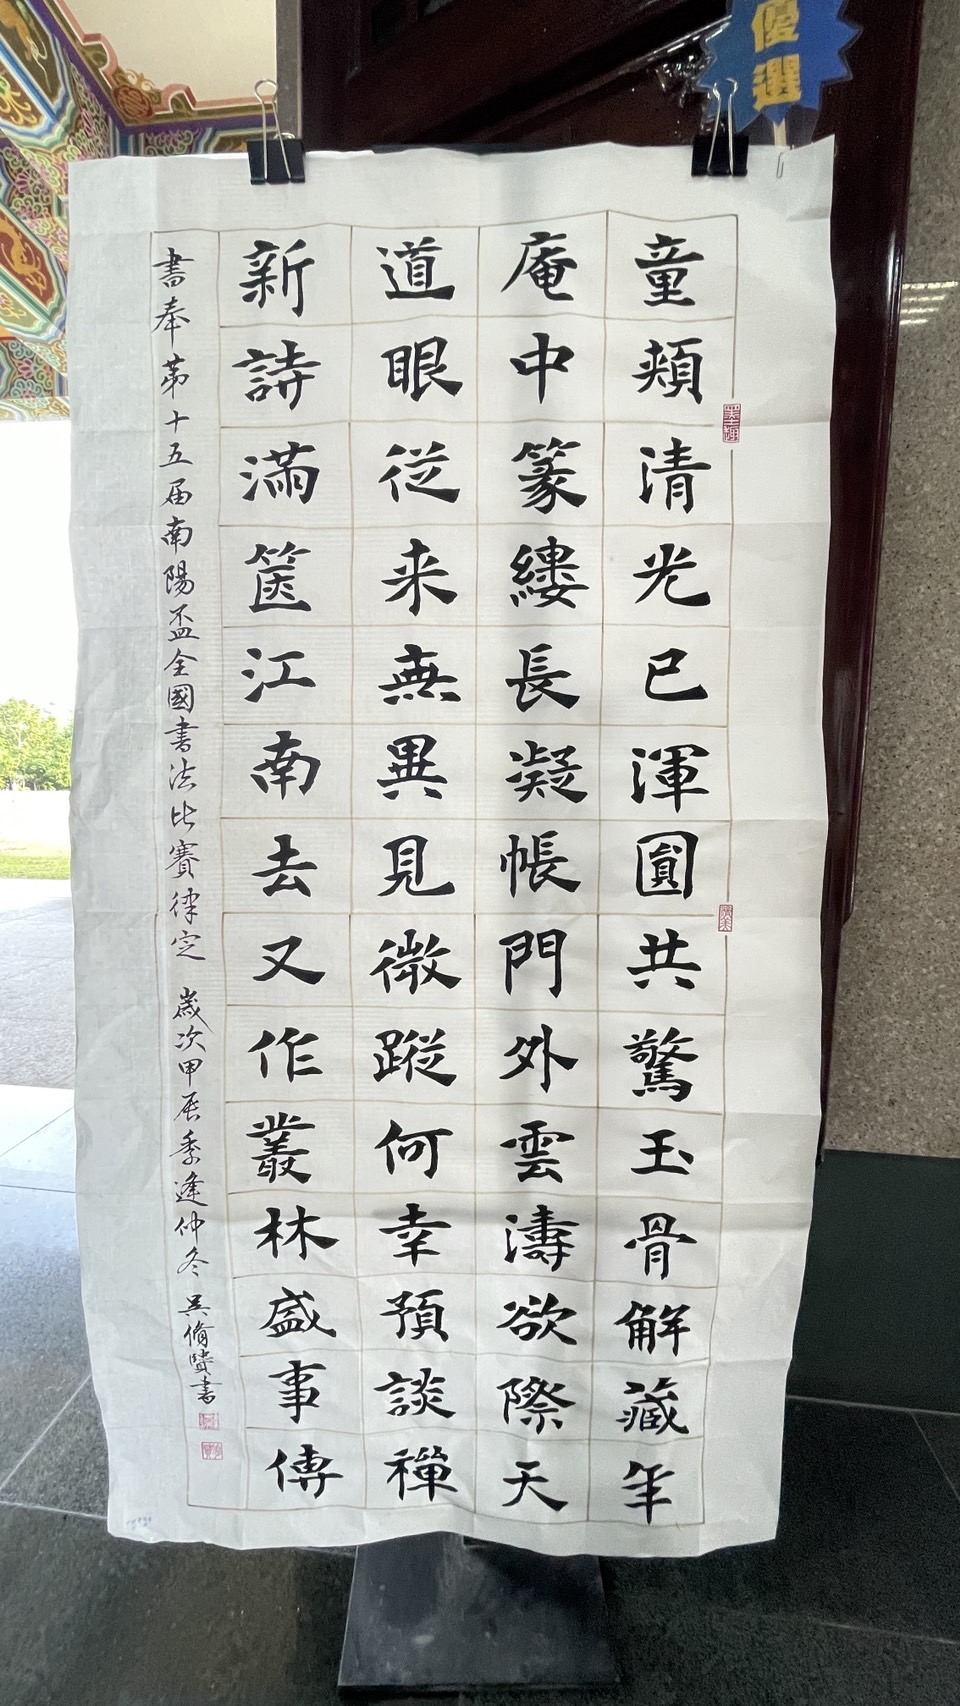 優選
童頰清光已渾圓共驚玉骨解藏年
庵中篆縷長凝帳門外雲濤欲際天
道眼從来無異見微蹤何幸預談禪
新詩滿篋江南去又作叢林盛事傳
書奉第十五届南陽盃全國書法比賽律定 歲次甲辰季逢仲冬 吳脩賢書